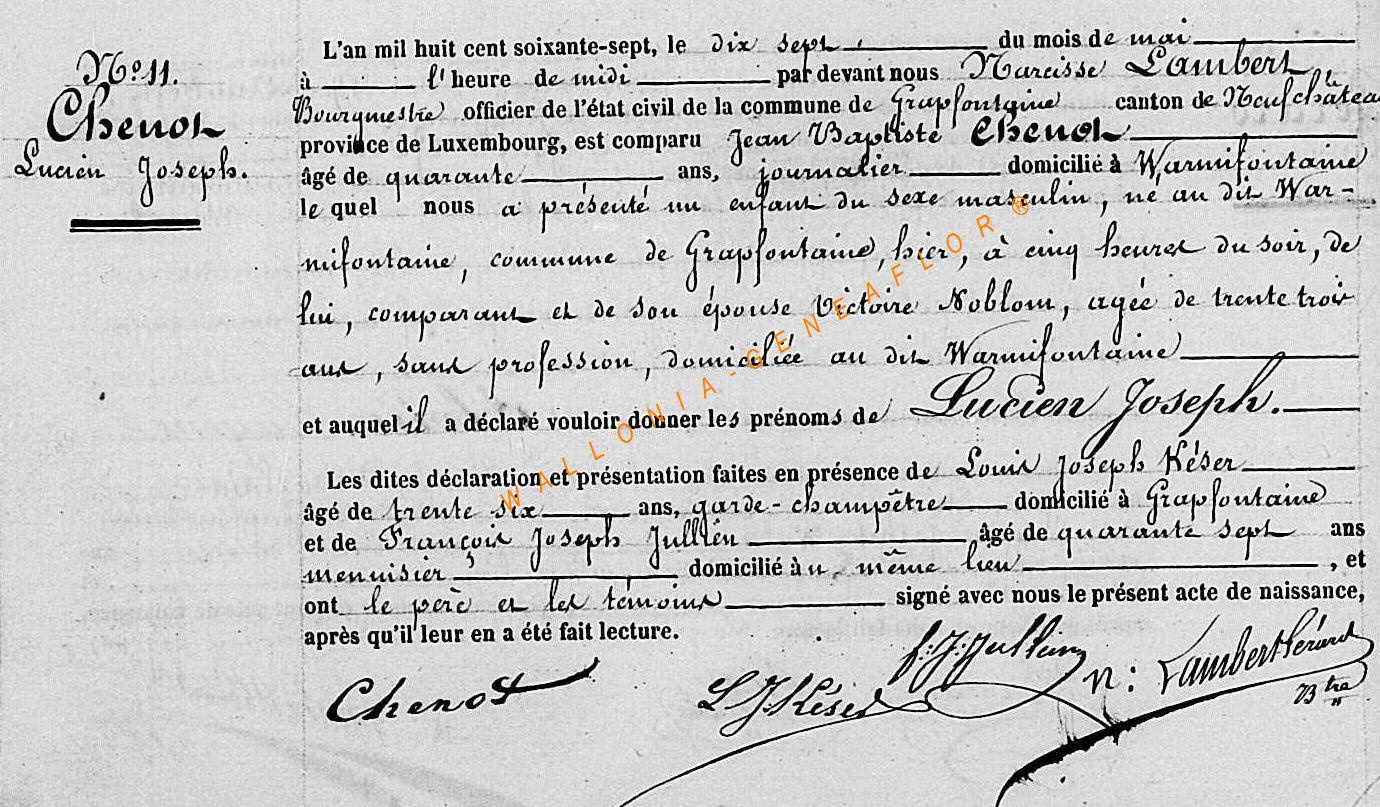 No. 11.
Chenot
Lucien Joseph.
L'an mil huit cent soixante-sept, le dix sept du mois de mai
à l'heure de midi par devant nous Narcisse Lambert
Bourgmestre officier de l'état civil de la commune de Grapfontaine canton de Neufchâteau
province de Luxembourg, est comparu Jean Baptiste Chenot
âgé de quarante ans, journalier domicilié à Warmifontaine
le quel nous a présenté un enfant du sexe masculin, né au dit War-
mifontaine, commune de Grapfontaine, hier, à cinq heures du soir, de
lui, comparant et de son épouse Victoire Noblom, agée de trente trois
ans, sans profession, domiciliée au dit Warmifontaine
et auquel il a déclaré vouloir donner les prénoms de Lucien Joseph.
Les dites déclaration et présentation faites en présence de Louis Joseph Késer
âgé de trente six ans, garde-champêtre domicilié à Grapfontaine
et de François Joseph Jullien âgé de quarante sept ans
menuisier domicilié au même lieu, et
ont le père et les témoins signé avec nous le présent acte de naissance,
après qu'il leur en a été fait lecture.
Chenot L J Késer f: J: Jullien n: Lambert Gérard
Btre
WALLONIA-GENEAFLOR®